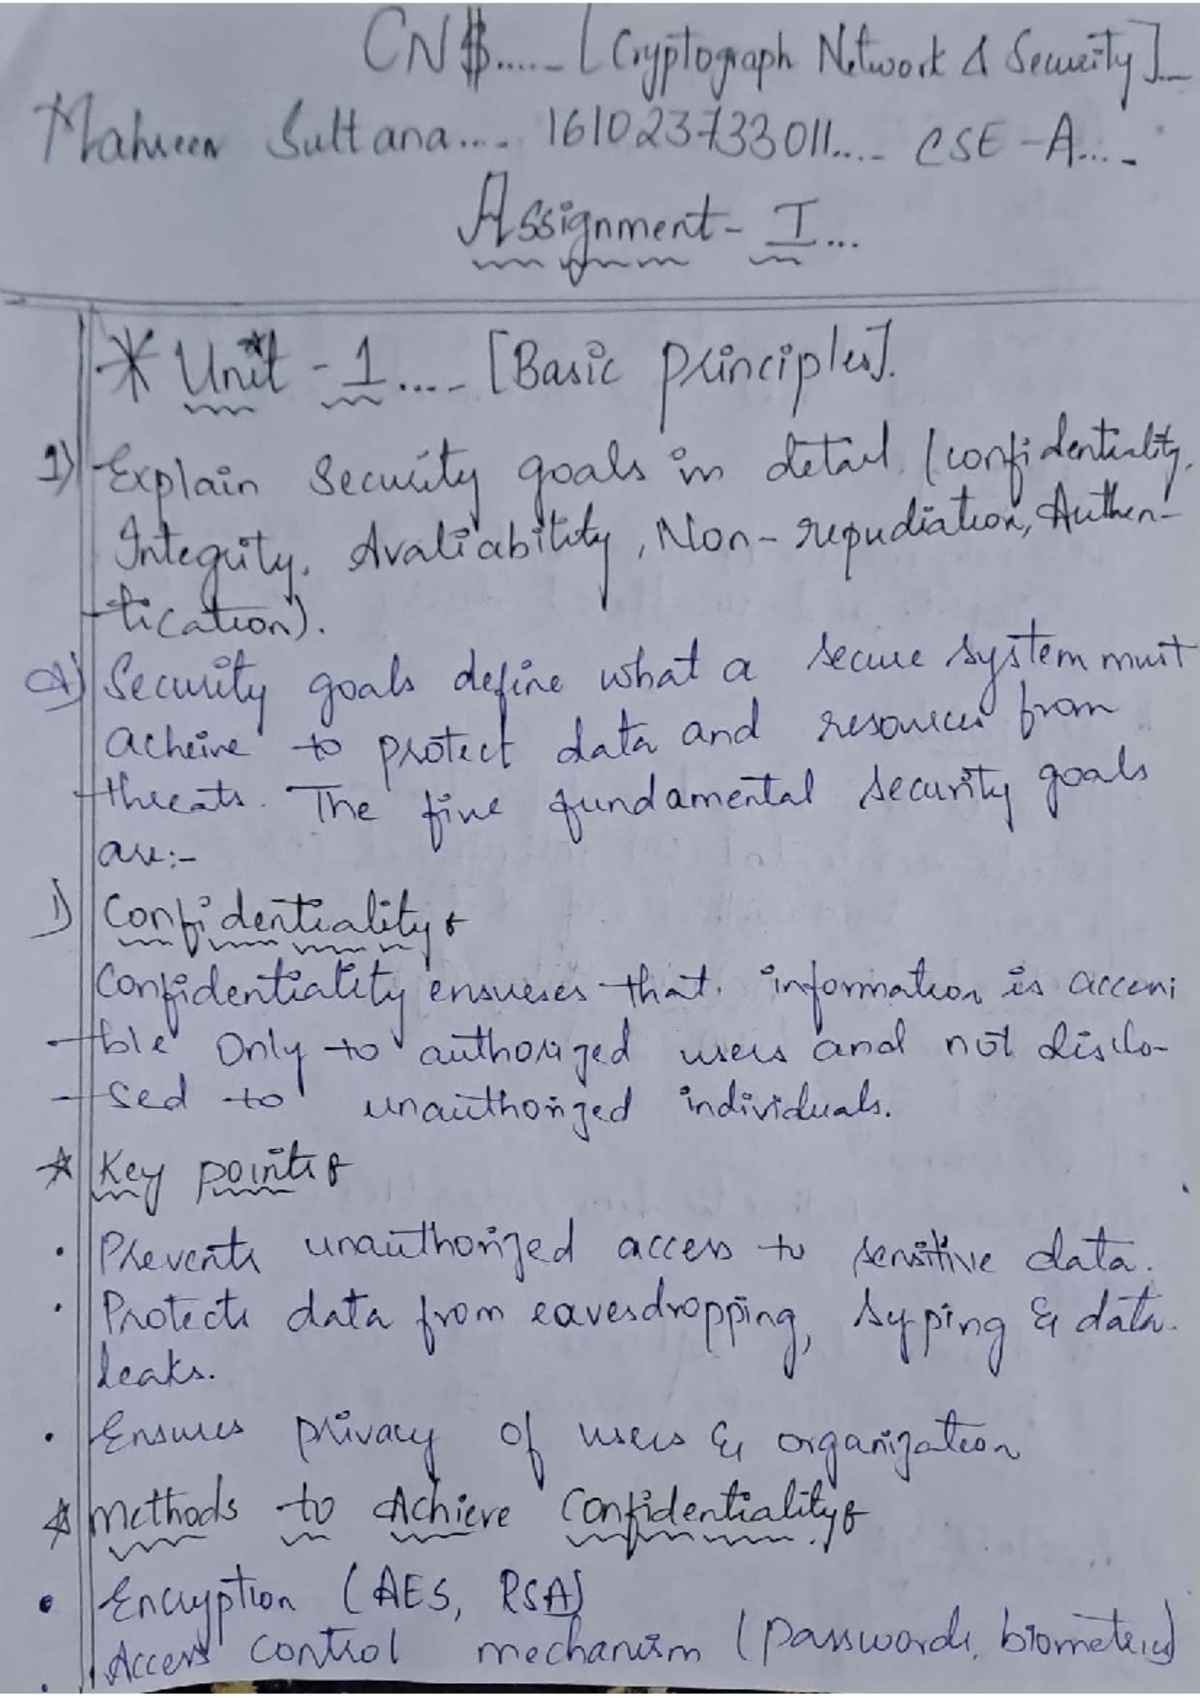 CN$....- [Cryptograph Network & Security]...
Mahreen Sultana.... 161023733011.... CSE-A....-
Assignment- I...
* Unit - 1....- [Basic principles].
1) Explain Security goals in detail (confidentiality,
Integrity, Avaliability, Non-repudiation, Authen-
tication).
A) Security goals define what a secure system must
acheive to protect data and resources from
threats. The five fundamental security goals
are:-
1) Confidentiality:
Confidentiality ensureses that information is accessi
-ble Only to authorized users and not disclo-
-sed to unauthorized individuals.
* Key points:
• Prevents unauthorized access to sensitive data.
• Protects data from eavesdropping, syping & data
leaks.
• Ensures privacy of users & organization
* Methods to Achieve Confidentiality:
• Encryption (AES, RSA)
• Access control mechanism (passwords, biometrics)